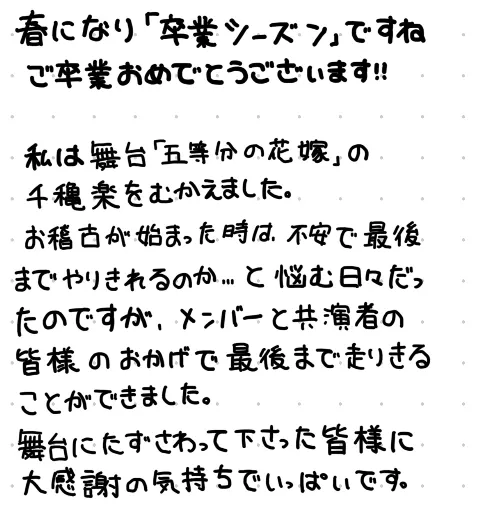 春になり「卒業シーズン」ですね
ご卒業おめでとうございます!!
私は舞台「五等分の花嫁」の
千穐楽をむかえました。
お稽古が始まった時は、不安で最後
までやりきれるのか…と悩む日々だっ
たのですが、メンバーと共演者の
皆様のおかげで最後まで走りきる
ことができました。
舞台にたずさわって下さった皆様に
大感謝の気持ちでいっぱいです。